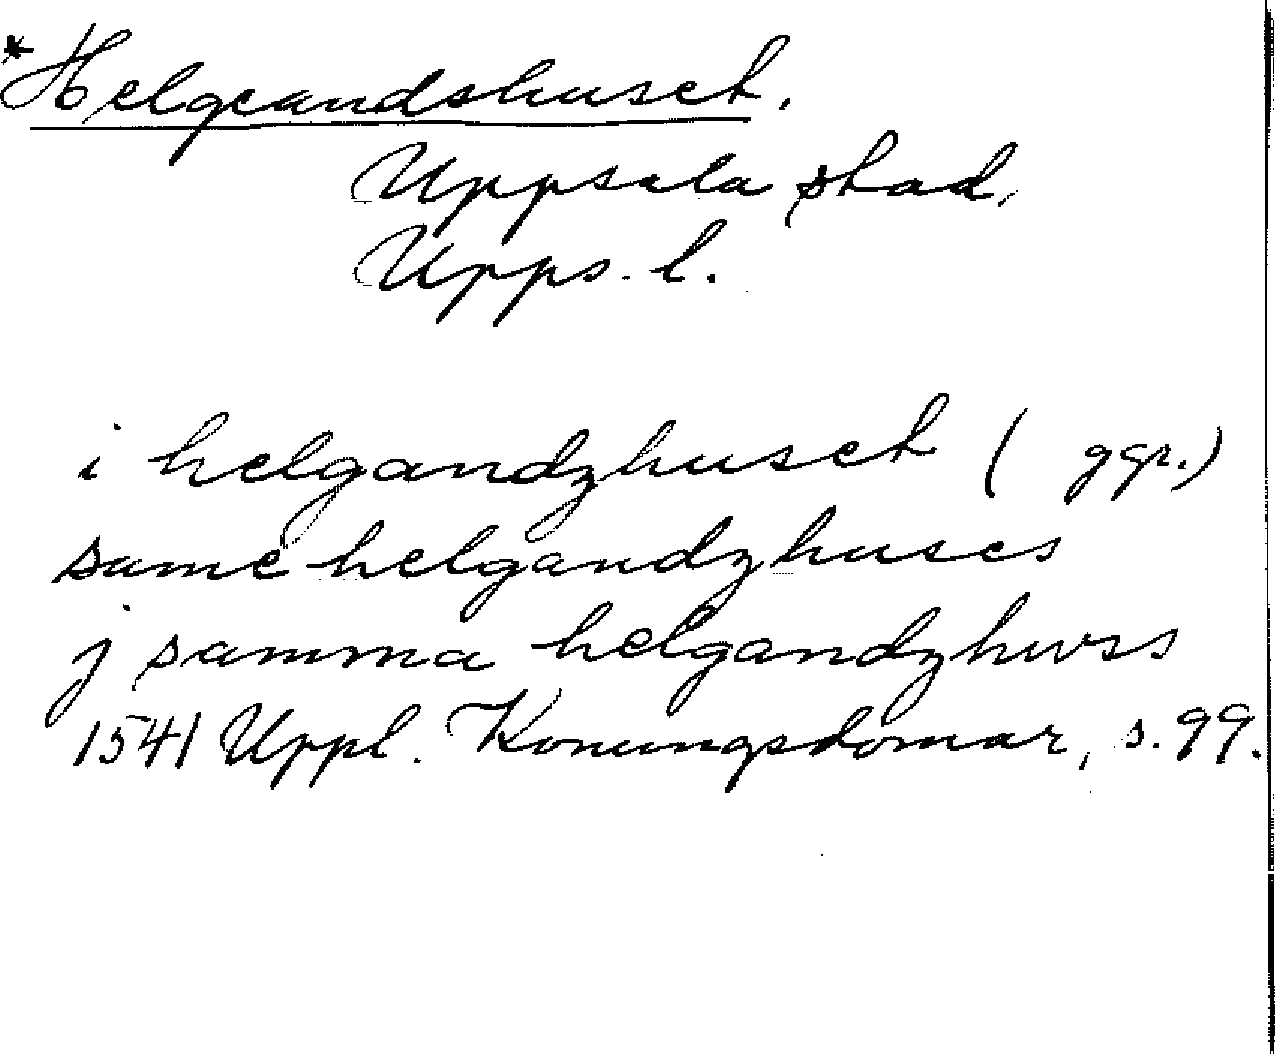 *Helgeandshuset.
Uppsala stad,
Upps. l.
i helgandzhuset ( ggr.)
same helgandzhuses
j samma helgandzhwss
1541 Uppl. Konungsdomar, s. 99.